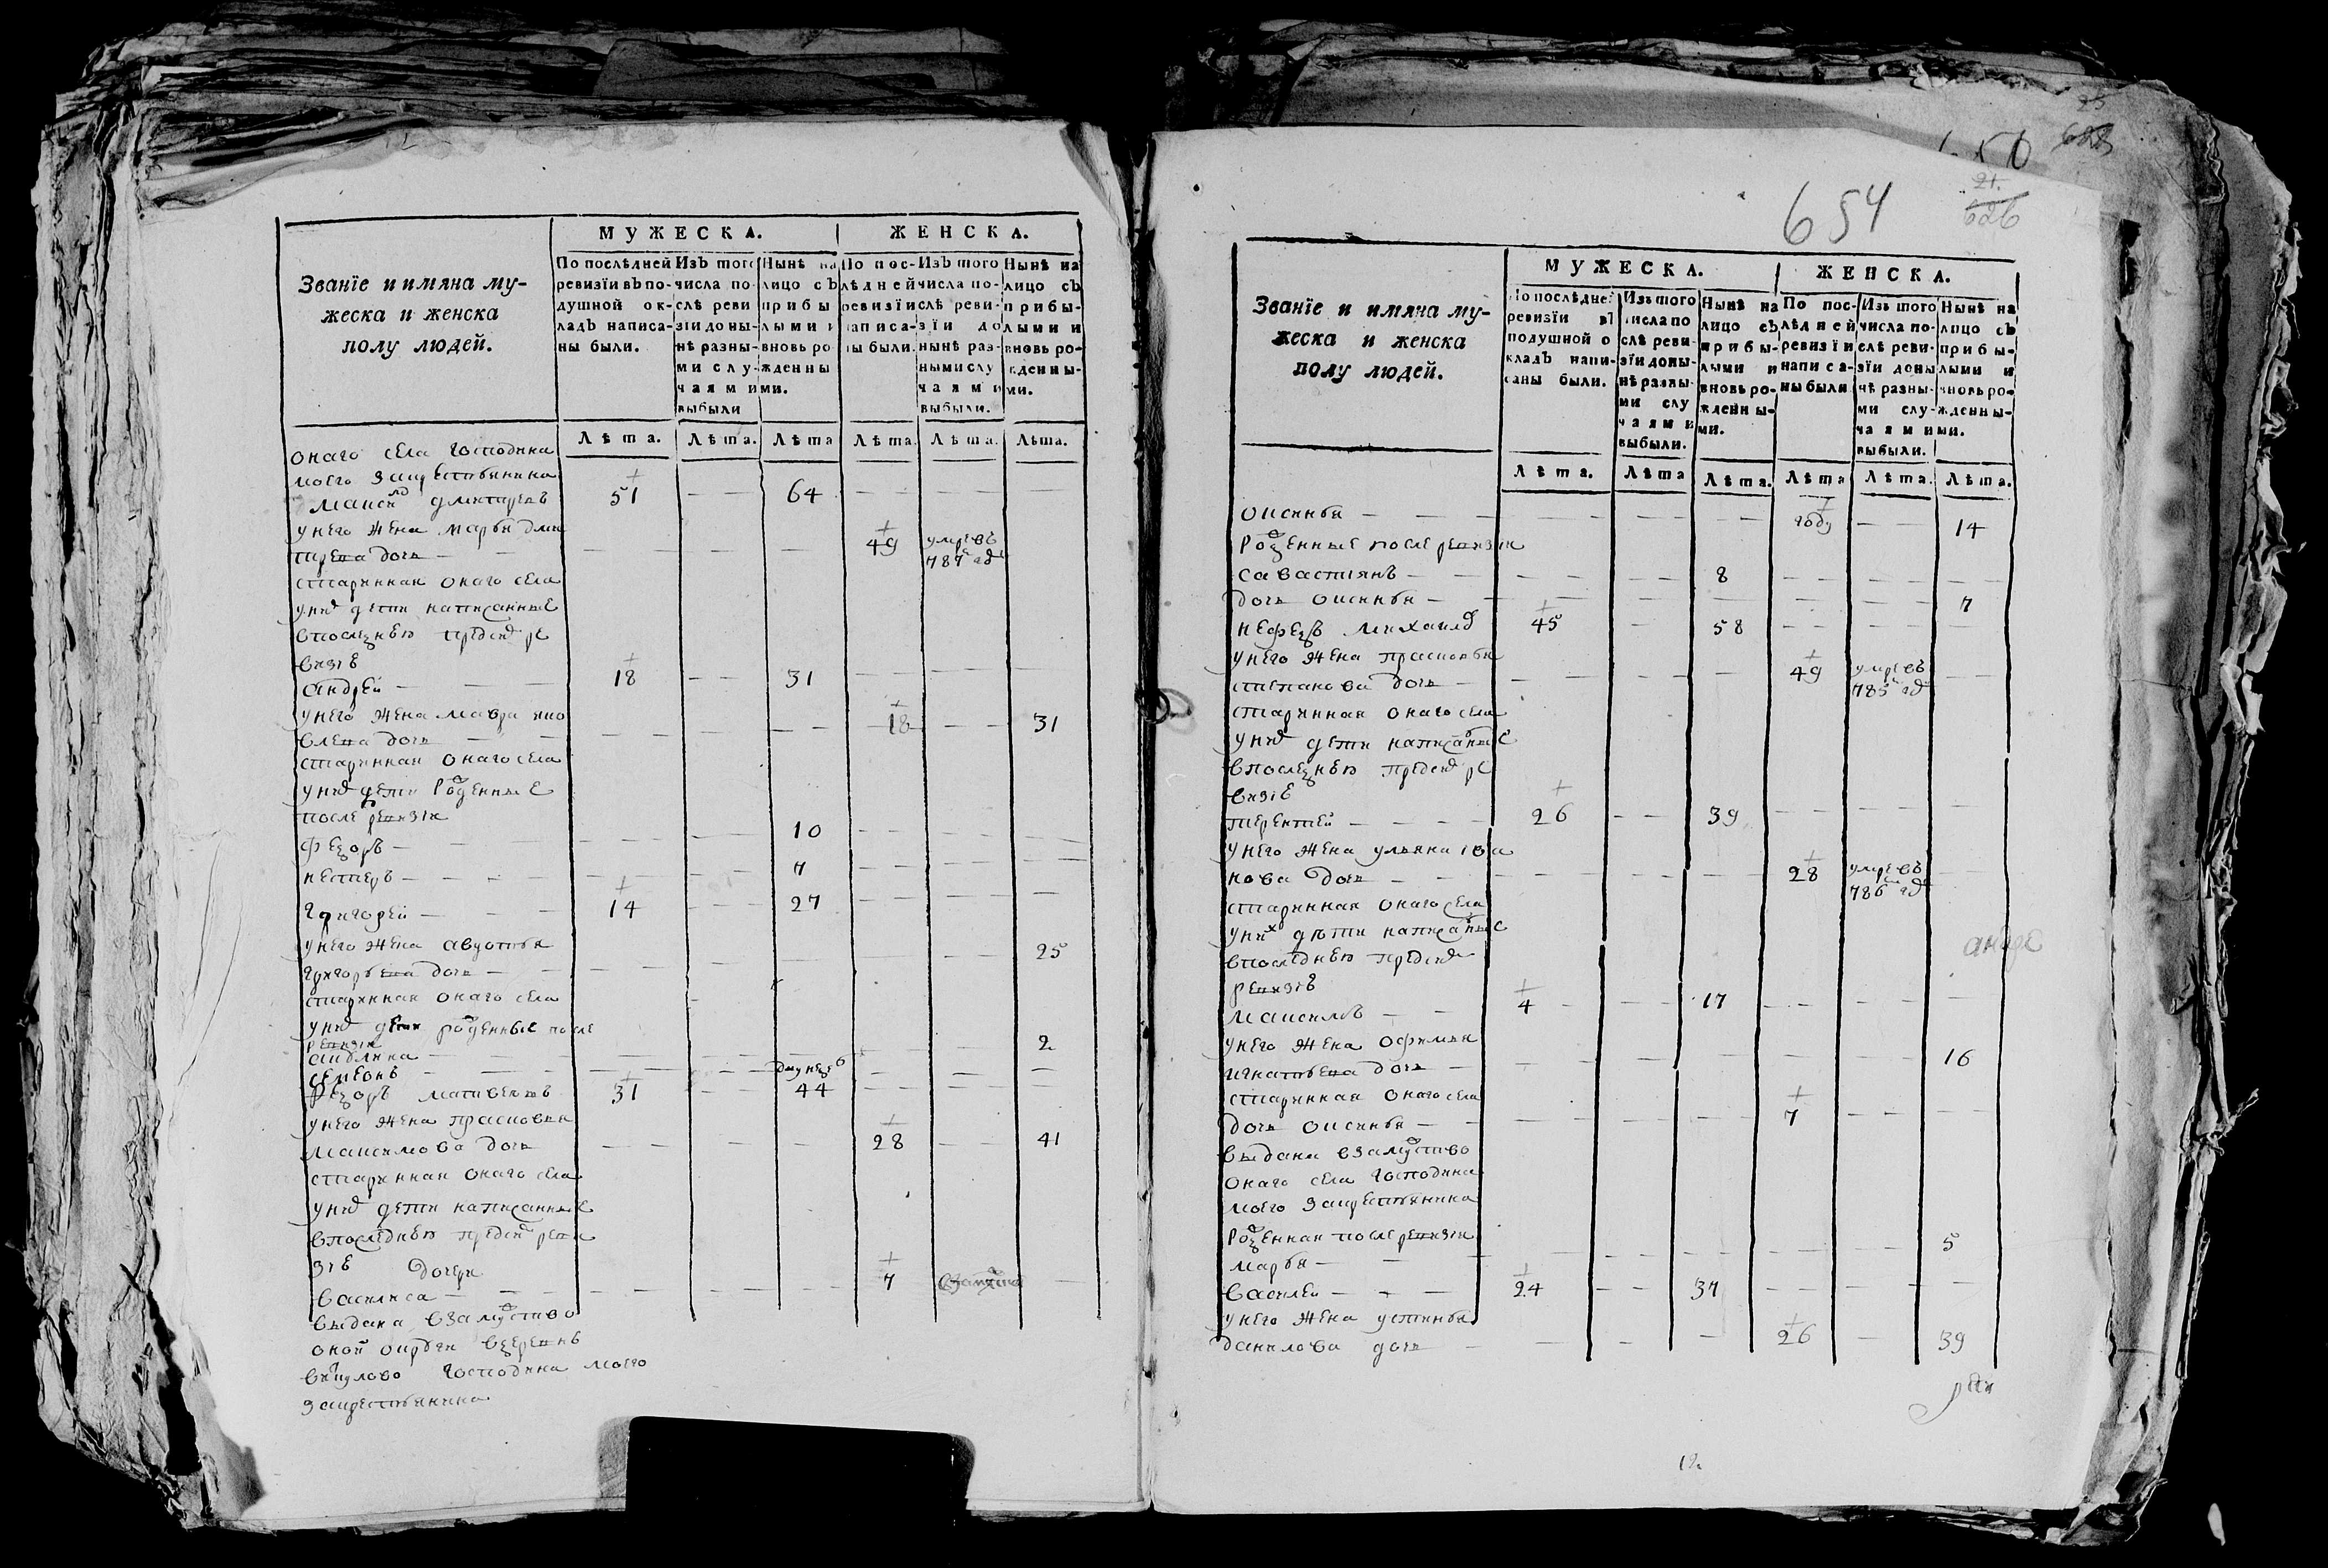 МУЖЕСКА. ЖЕНСКА.
Званїе и имяна му-
жеска и женска
полу людей.
По послѣдней
ревизїи въ по-
душной ок-
ладъ написа-
ны были.
Изъ того
числа по-
слѣ реви
зїи доны-
нѣ разны-
ми слу-
чаями
выбыли
Нынѣ на
лицо съ
прибы
лыми и
вновь ро
жденны
ми.
По пос-
лѣдней
ревизїи
написа-
ны были.
Изъ того
числа по-
слѣ реви-
зїи до
нынѣ раз-
ными слу
чаями
выбыли.
Нынѣ на
лицо съ
прибы-
лыми и
вновь ро-
жденны-
ми.
Лѣта. Лѣта. Лѣта Лѣта. Лѣта. Лѣта.
онаго села Господина
моего
дмитреевъ 51 64
унего жена марфа дми
трева дочь 49 умре въ 787 год
старинная онаго села
уних дети написанные
впоследнею пред ре
визiе
андрей 18 31
унего жена мавра яко
влева дочь 18 31
старинная онаго села
уних дети рожденные
после ревизiи
федоръ 10
нестеръ 7
григорей 14 27
унего жена авдотья
григорьева дочь 25
старинная онаго села
уних дети рожденные после
ревизiи
2
семенъ
федоръ матвеевъ 31 44
унего жена прасковья
максимова дочь 28 41
старинная онаго села
уних дети написанные
впоследнею пред реви
зiе дочери
василиса 7
выдана взамужство
оной округи вдеревню
господина моего
МУЖЕСКА. ЖЕНСКА.
Званїе и имяна му-
жеска и женска
полу людей.
По послѣдней
ревизїи въ
подушной о
кладъ напи-
саны были.
Изъ того
числа по
слѣ реви-
зїи доны-
нѣ разны-
ми слу
чаями
выбыли.
Нынѣ на
лицо съ
прибы-
лыми и
вновь ро-
жденны-
ми.
По пос-
лѣдней
ревизїи
написа-
ны были
Изъ того
числа по-
слѣ реви-
зїи доны
нѣ разны-
ми слу-
чаями
выбыли.
Нынѣ на
лицо съ
прибы-
лыми и
вновь ро-
жденны-
ми.
Лѣта. Лѣта Лѣта. Лѣта Лѣта. Лѣта.
654
626
оксинья году 14
рожденные после ревизiи
савастиянъ 8
дочь оксинья 7
нефедъ михаилов 45 58
унего жена прасковья
степанова дочь 49 умре въ 785 год
старинная онаго села
уних дети написаные
впоследнею пред ре
визiе
терентей 26 39
унего жена ульяна ива
нова дочь 28 умре въ 786 год
старинная онаго села
уних дети написаные
впоследнею пред
ревизiе
максимъ 4 17
унего жена офимья
игнатьева дочь 16
старинная онаго села
дочь оксинья 7
выдана взамужство
онаго села господина
моего
рожденная после ревизiи
марфа 5
василей 24 37
унего жена устинья
данилова дочь 26 39